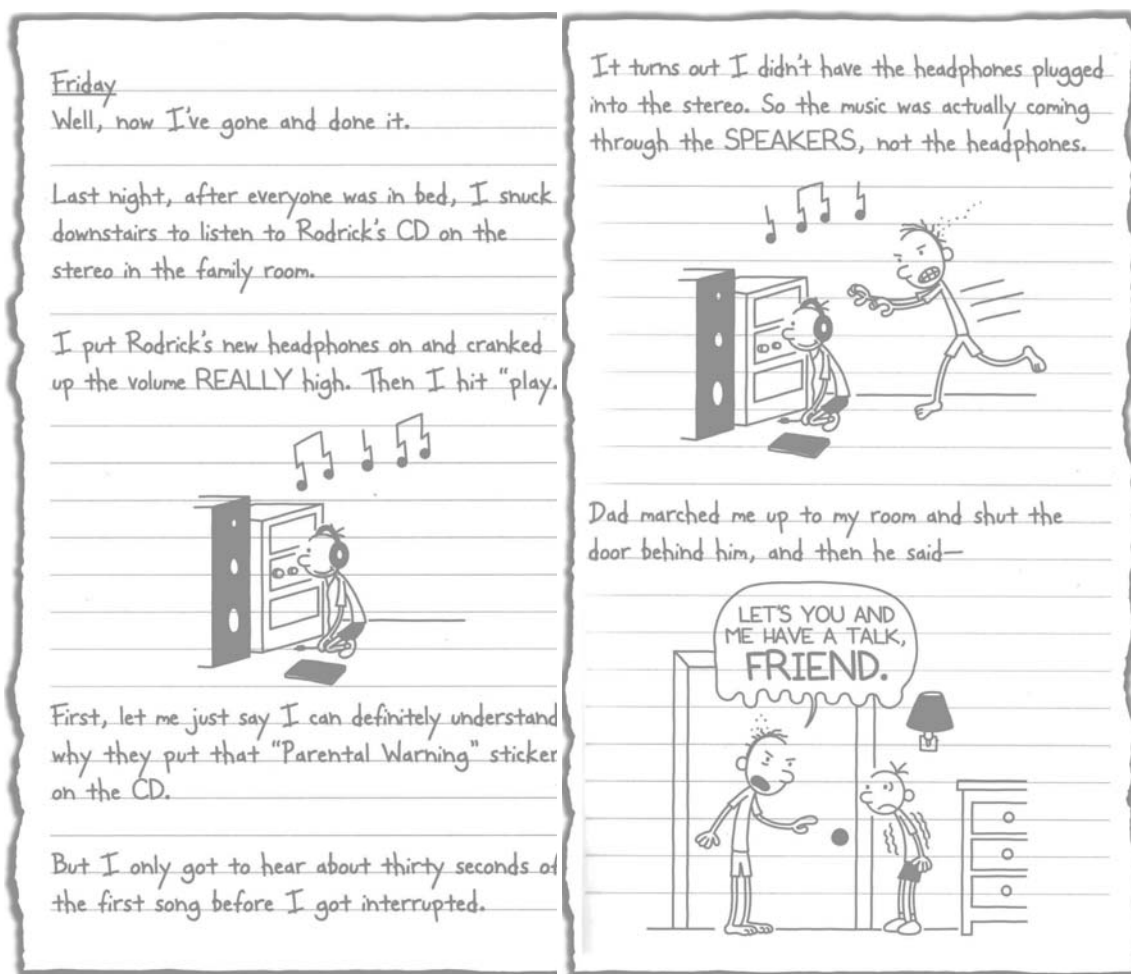 Friday
Well, now I've gone and done it.
Last night, after everyone was in bed, I snuck
downstairs to listen to Rodrick's CD on the
stereo in the family room.
I put Rodrick's new headphones on and cranked
up the volume REALLY high. Then I hit "play.
First, let me just say I can definitely understand
why they put that "Parental Warning" sticker
on the CD.
But I only got to hear about thirty seconds of
the first song before I got interrupted.
It turns out I didn't have the headphones plugged
into the stereo. So the music was actually coming
through the SPEAKERS, not the headphones.
Dad marched me up to my room and shut the
door behind him, and then he said—
LET'S YOU AND
ME HAVE A TALK,
FRIEND.